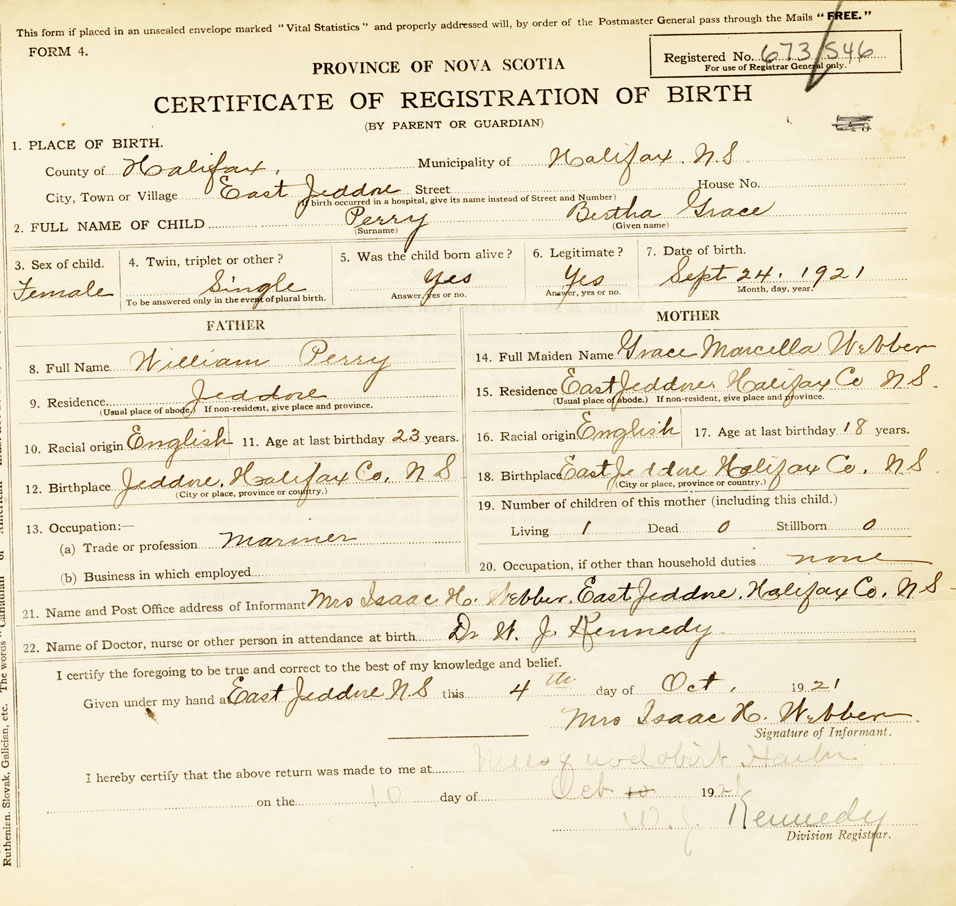 This form if placed in an unsealed envelope marked "Vital Statistics" and properly addressed will, by order of the Postmaster General pass through the Mails "FREE."
FORM 4.
Registered No. 673546
For use of Registrar General only.
PROVINCE OF NOVA SCOTIA
CERTIFICATE OF REGISTRATION OF BIRTH
(BY PARENT OR GUARDIAN)
1. PLACE OF BIRTH.
County of Halifax, Municipality of Halifax N.S
City, Town or Village East Jeddore Street House No.
(If birth occurred in a hospital, give its name instead of Street and Number)
2. FULL NAME OF CHILD Perry Bertha Grace
(Surname) (Given name)
3. Sex of child. 4. Twin, triplet or other? 5. Was the child born alive? 6. Legitimate? 7. Date of birth.
Female Single Yes Yes Sept 24, 1921
To be answered only in the event of plural birth. Answer, yes or no. Answer, yes or no. Month, day, year.
FATHER MOTHER
8. Full Name William Perry
14. Full Maiden Name Grace Marcella Webber
9. Residence Jeddore
(Usual place of abode.) If non-resident, give place and province.
15. Residence East Jeddore Halifax Co N S.
(Usual place of abode.) If non-resident, give place and province.
10. Racial origin English 11. Age at last birthday 23 years.
16. Racial origin English 17. Age at last birthday 18 years.
12. Birthplace Jeddore, Halifax Co, N S
(City or place, province or country.)
18. Birthplace East Jeddore Halifax Co, N S
(City or place, province or country.)
13. Occupation:—
(a) Trade or profession Mariner
(b) Business in which employed
19. Number of children of this mother (including this child.)
Living 1 Dead 0 Stillborn 0
20. Occupation, if other than household duties none
21. Name and Post Office address of Informant Mrs Isaac H. Webber, East Jeddore, Halifax Co, N S
22. Name of Doctor, nurse or other person in attendance at birth Dr W. J. Kennedy
I certify the foregoing to be true and correct to the best of my knowledge and belief.
Given under my hand at East Jeddore N S this 4th day of Oct, 1921
Mrs Isaac H. Webber
Signature of Informant.
I hereby certify that the above return was made to me at Musquodoboit Harbr
on the 10 day of Oct 1921
W. J. Kennedy
Division Registrar.
Ruthenian, Slovak, Galician, etc. The words "Canadian" or "American"